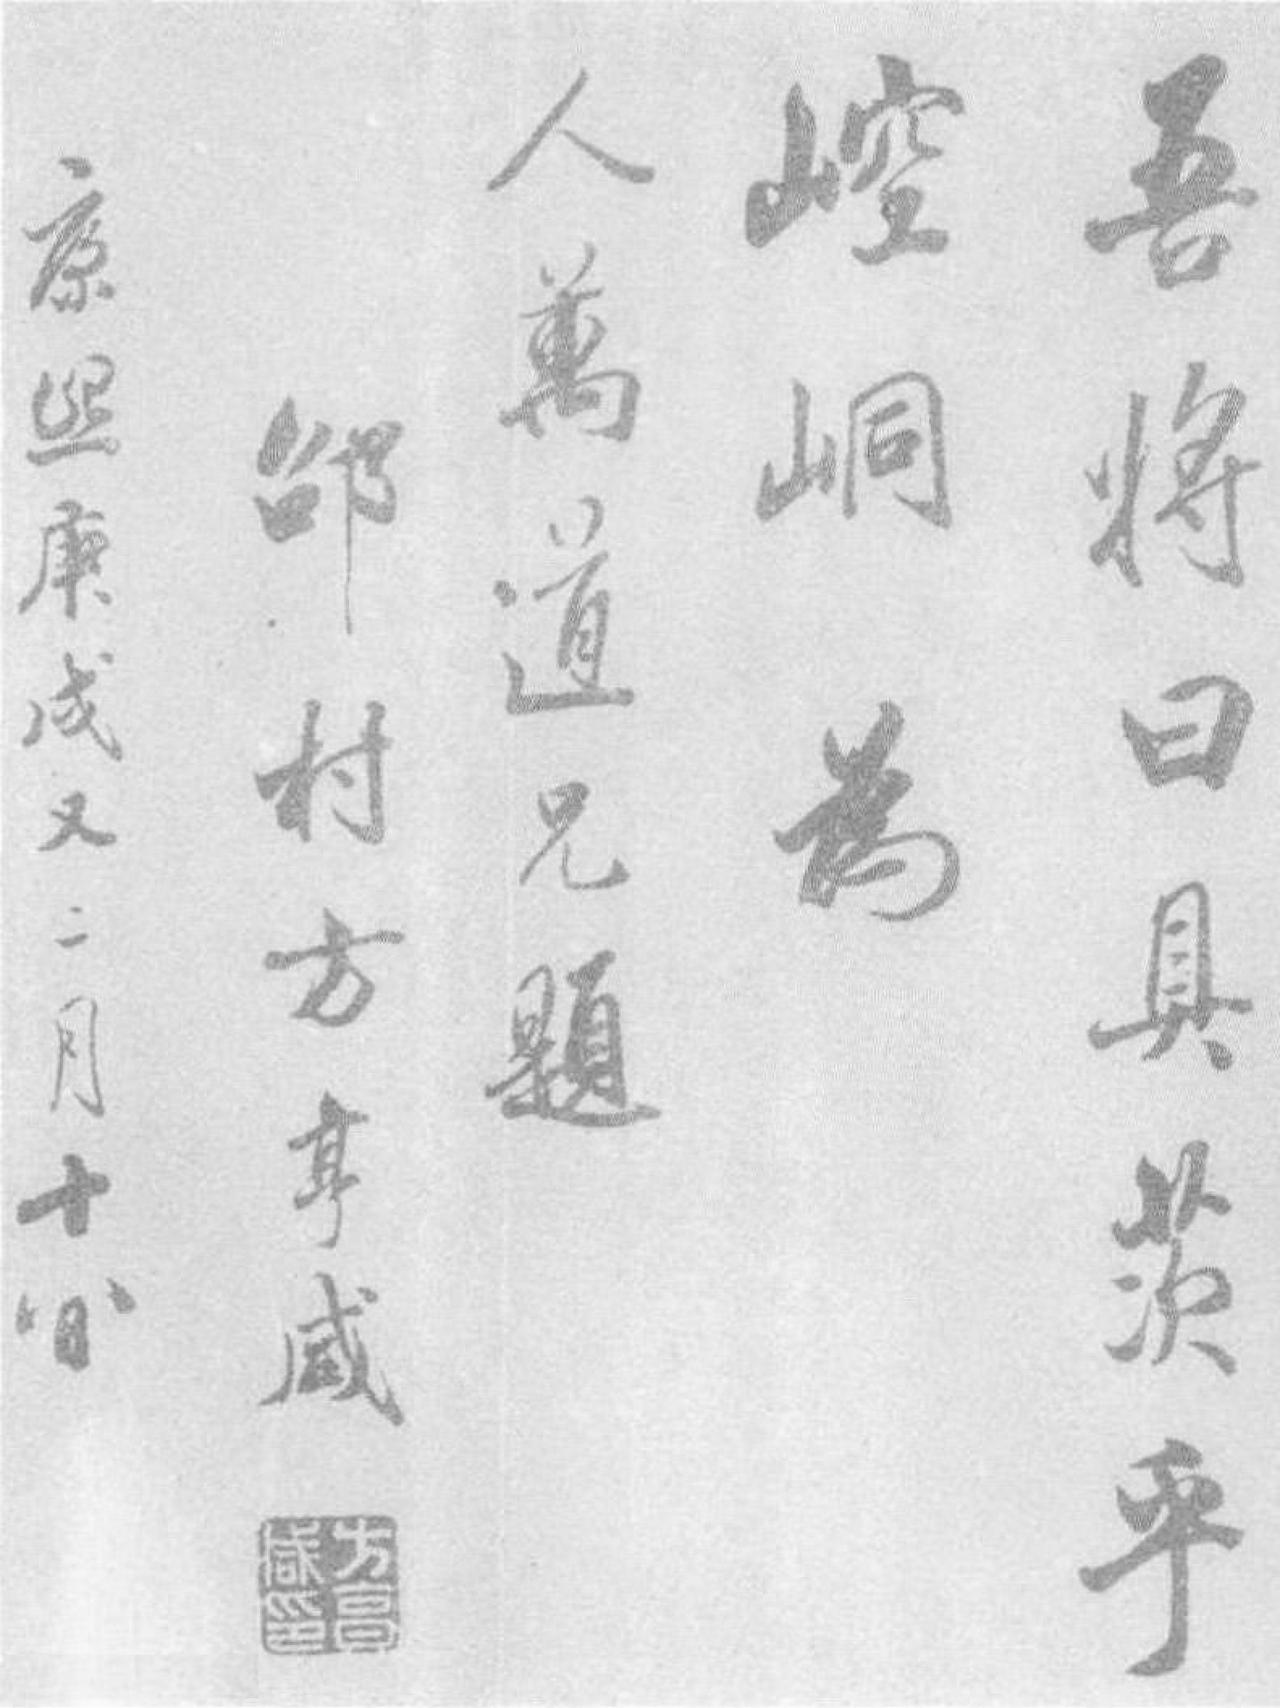 吾將曰具茨乎
崆峒為
人萬道兄題
邵村方亨咸
康熙庚戌又二月十八日
方亨咸印